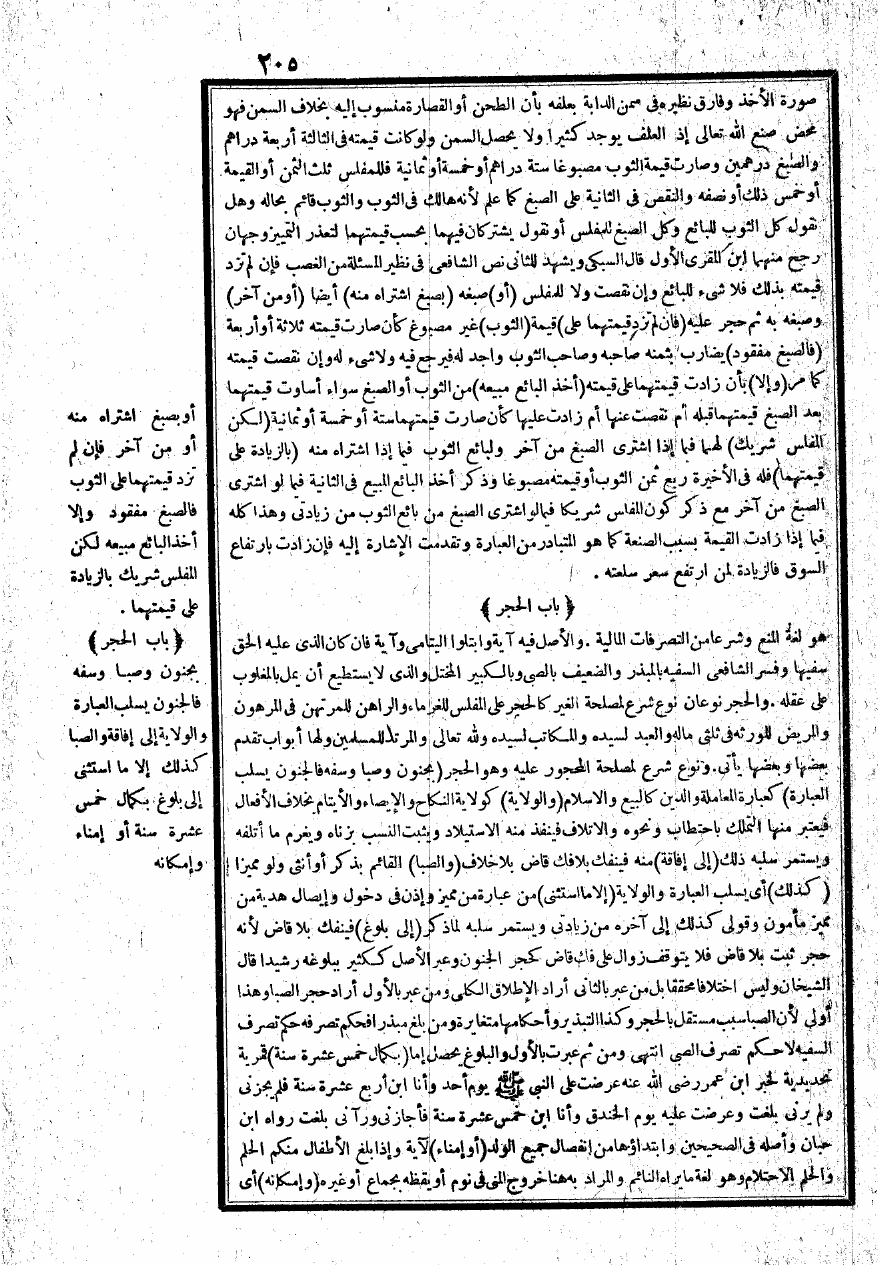 ٢٠٥
صورة الأخذ وفارق نظيره فى سمن الدابة بعلفه بأن الطحن أو القصارة منسوب إليه بخلاف السمن فهو
محض صنع الله تعالى إذ العلف يوجد كثيرا ولا يحصل السمن ولو كانت قيمته فى الثالثة أربعة دراهم
والصبغ درهمين وصارت قيمة الثوب مصبوغا ستة دراهم أو خمسة أو ثمانية فللمفلس ثلث الثمن أو القيمة
أو خمس ذلك أو نصفه والنقص فى الثانية على الصبغ كما علم لأنه هالك فى الثوب والثوب قائم بحاله وهل
نقول كل الثوب للبائع وكل الصبغ للمفلس أو نقول يشتركان فيهما بحسب قيمتهما لتعذر التمييز وجهان
رجح منهما ابن المقرى الأول قال السبكى ويشهد للثانى نص الشافعى فى نظير المسئلة من الغصب فإن لم تزد
قيمته بذلك فلا شىء للبائع وإن نقصت ولا للمفلس (أو) صبغه (بصبغ اشتراه منه) أيضا (أو من آخر)
وصبغه به ثم حجر عليه (فان لم تزد قيمتهما على) قيمة (الثوب) غير مصبوغ كأن صارت قيمته ثلاثة أو أربعة
(فالصبغ مفقود) يضارب بثمنه صاحبه وصاحب الثوب واجد له فيرجع فيه ولا شىء له وإن نقصت قيمته
كما مر (وإلا) بأن زادت قيمتهما على قيمته (أخذ البائع مبيعه) من الثوب أو الصبغ سواء أساوت قيمتهما
بعد الصبغ قيمتهما قبله أم نقصت عنها أم زادت عليها كأن صارت قيمتهما ستة أو خمسة أو ثمانية (لكن
المفلس شريك) لهما فيما إذا اشترى الصبغ من آخر ولبائع الثوب فيما إذا اشتراه منه (بالزيادة على
قيمتهما) فله فى الأخيرة ربع ثمن الثوب أو قيمته مصبوغا وذكر أخذ البائع المبيع فى الثانية فيما لو اشترى
الصبغ من آخر مع ذكر كون المفلس شريكا فيما لو اشترى الصبغ من بائع الثوب من زيادتى وهذا كله
فيما إذا زادت القيمة بسبب الصنعة كما هو المتبادر من العبارة وتقدمت الإشارة إليه فإن زادت بارتفاع
السوق فالزيادة لمن ارتفع سعر سلعته .
﴿ باب الحجر ﴾
هو لغة المنع وشرعا من التصرفات المالية . والأصل فيه آية وابتلوا اليتامى وآية فان كان الذى عليه الحق
سفيها وفسر الشافعى السفيه بالمبذر والضعيف بالصبى وبالكبير المختل والذى لا يستطيع أن يمل بالمغلوب
على عقله . والحجر نوعان نوع شرع لمصلحة الغير كالحجر على المفلس للغرماء والراهن للمرتهن فى المرهون
والمريض للورثة فى ثلثى ماله والعبد لسيده والمكاتب لسيده ولله تعالى والمرتد للمسلمين ولها أبواب تقدم
بعضها وبعضها يأتى . ونوع شرع لمصلحة المحجور عليه وهو الحجر (بجنون وصبا وسفه فالجنون يسلب
العبارة) كعبارة المعاملة والدين كالبيع والاسلام (والولاية) كولاية النكاح والإيصاء والأيتام بخلاف الأفعال
فيعتبر منها التملك باحتطاب ونحوه والاتلاف فينفذ منه الاستيلاد ويثبت النسب بزناه ويغرم ما أتلفه
ويستمر سلبه ذلك (إلى إفاقة) منه فينفك بلا فك قاض بلا خلاف (والصبا) القائم بذكر أو أنثى ولو مميزا
(كذلك) أى يسلب العبارة والولاية (إلا ما استثنى) من عبارة من مميز وإذن فى دخول وإيصال هدية من
مميز مأمون وقولى كذلك إلى آخره من زيادتى ويستمر سلبه لما ذكر (إلى بلوغ) فينفك بلا قاض لأنه
حجر ثبت بلا قاض فلا يتوقف زوال على فك قاض كحجر الجنون وعبر الأصل ككثير ببلوغه رشيدا قال
الشيخان وليس اختلافا محققا بل من عبر بالثانى أراد الإطلاق الكلى ومن عبر بالأول أراد حجر الصبا وهذا
أولى لأن الصبا سبب مستقل بالحجر وكذا التبذير وأحكامهما متغايرة ومن بلغ مبذرا فحكم تصرفه حكم تصرف
السفيه لا حكم تصرف الصبى انتهى ومن ثم عبرت بالأول والبلوغ يحصل إما (بكمال خمس عشرة سنة) قمرية
تحديدية لخبر ابن عمر رضى الله عنه عرضت على النبى ﷺ يوم أحد وأنا ابن أربع عشرة سنة فلم يجزنى
ولم يرنى بلغت وعرضت عليه يوم الخندق وأنا ابن خمس عشرة سنة فأجازنى ورآنى بلغت رواه ابن
حبان وأصله فى الصحيحين وابتداؤها من انفصال جميع الولد (أو إمناء) لآية وإذا بلغ الأطفال منكم الحلم
والحلم الاحتلام وهو لغة ما يراه النائم والمراد به هنا خروج المنى فى نوم أو يقظه بجماع أو غيره (وإمكانه) أى
أو بصبغ اشتراه منه
أو من آخر فإن لم
تزد قيمتهما على الثوب
فالصبغ مفقود وإلا
أخذ البائع مبيعه لكن
المفلس شريك بالزيادة
على قيمتهما .
﴿ باب الحجر ﴾
بجنون وصبا وسفه
فالجنون يسلب العبارة
والولاية إلى إفاقة والصبا
كذلك إلا ما استثنى
إلى بلوغ بكمال خمس
عشرة سنة أو إمناء
وإمكانه